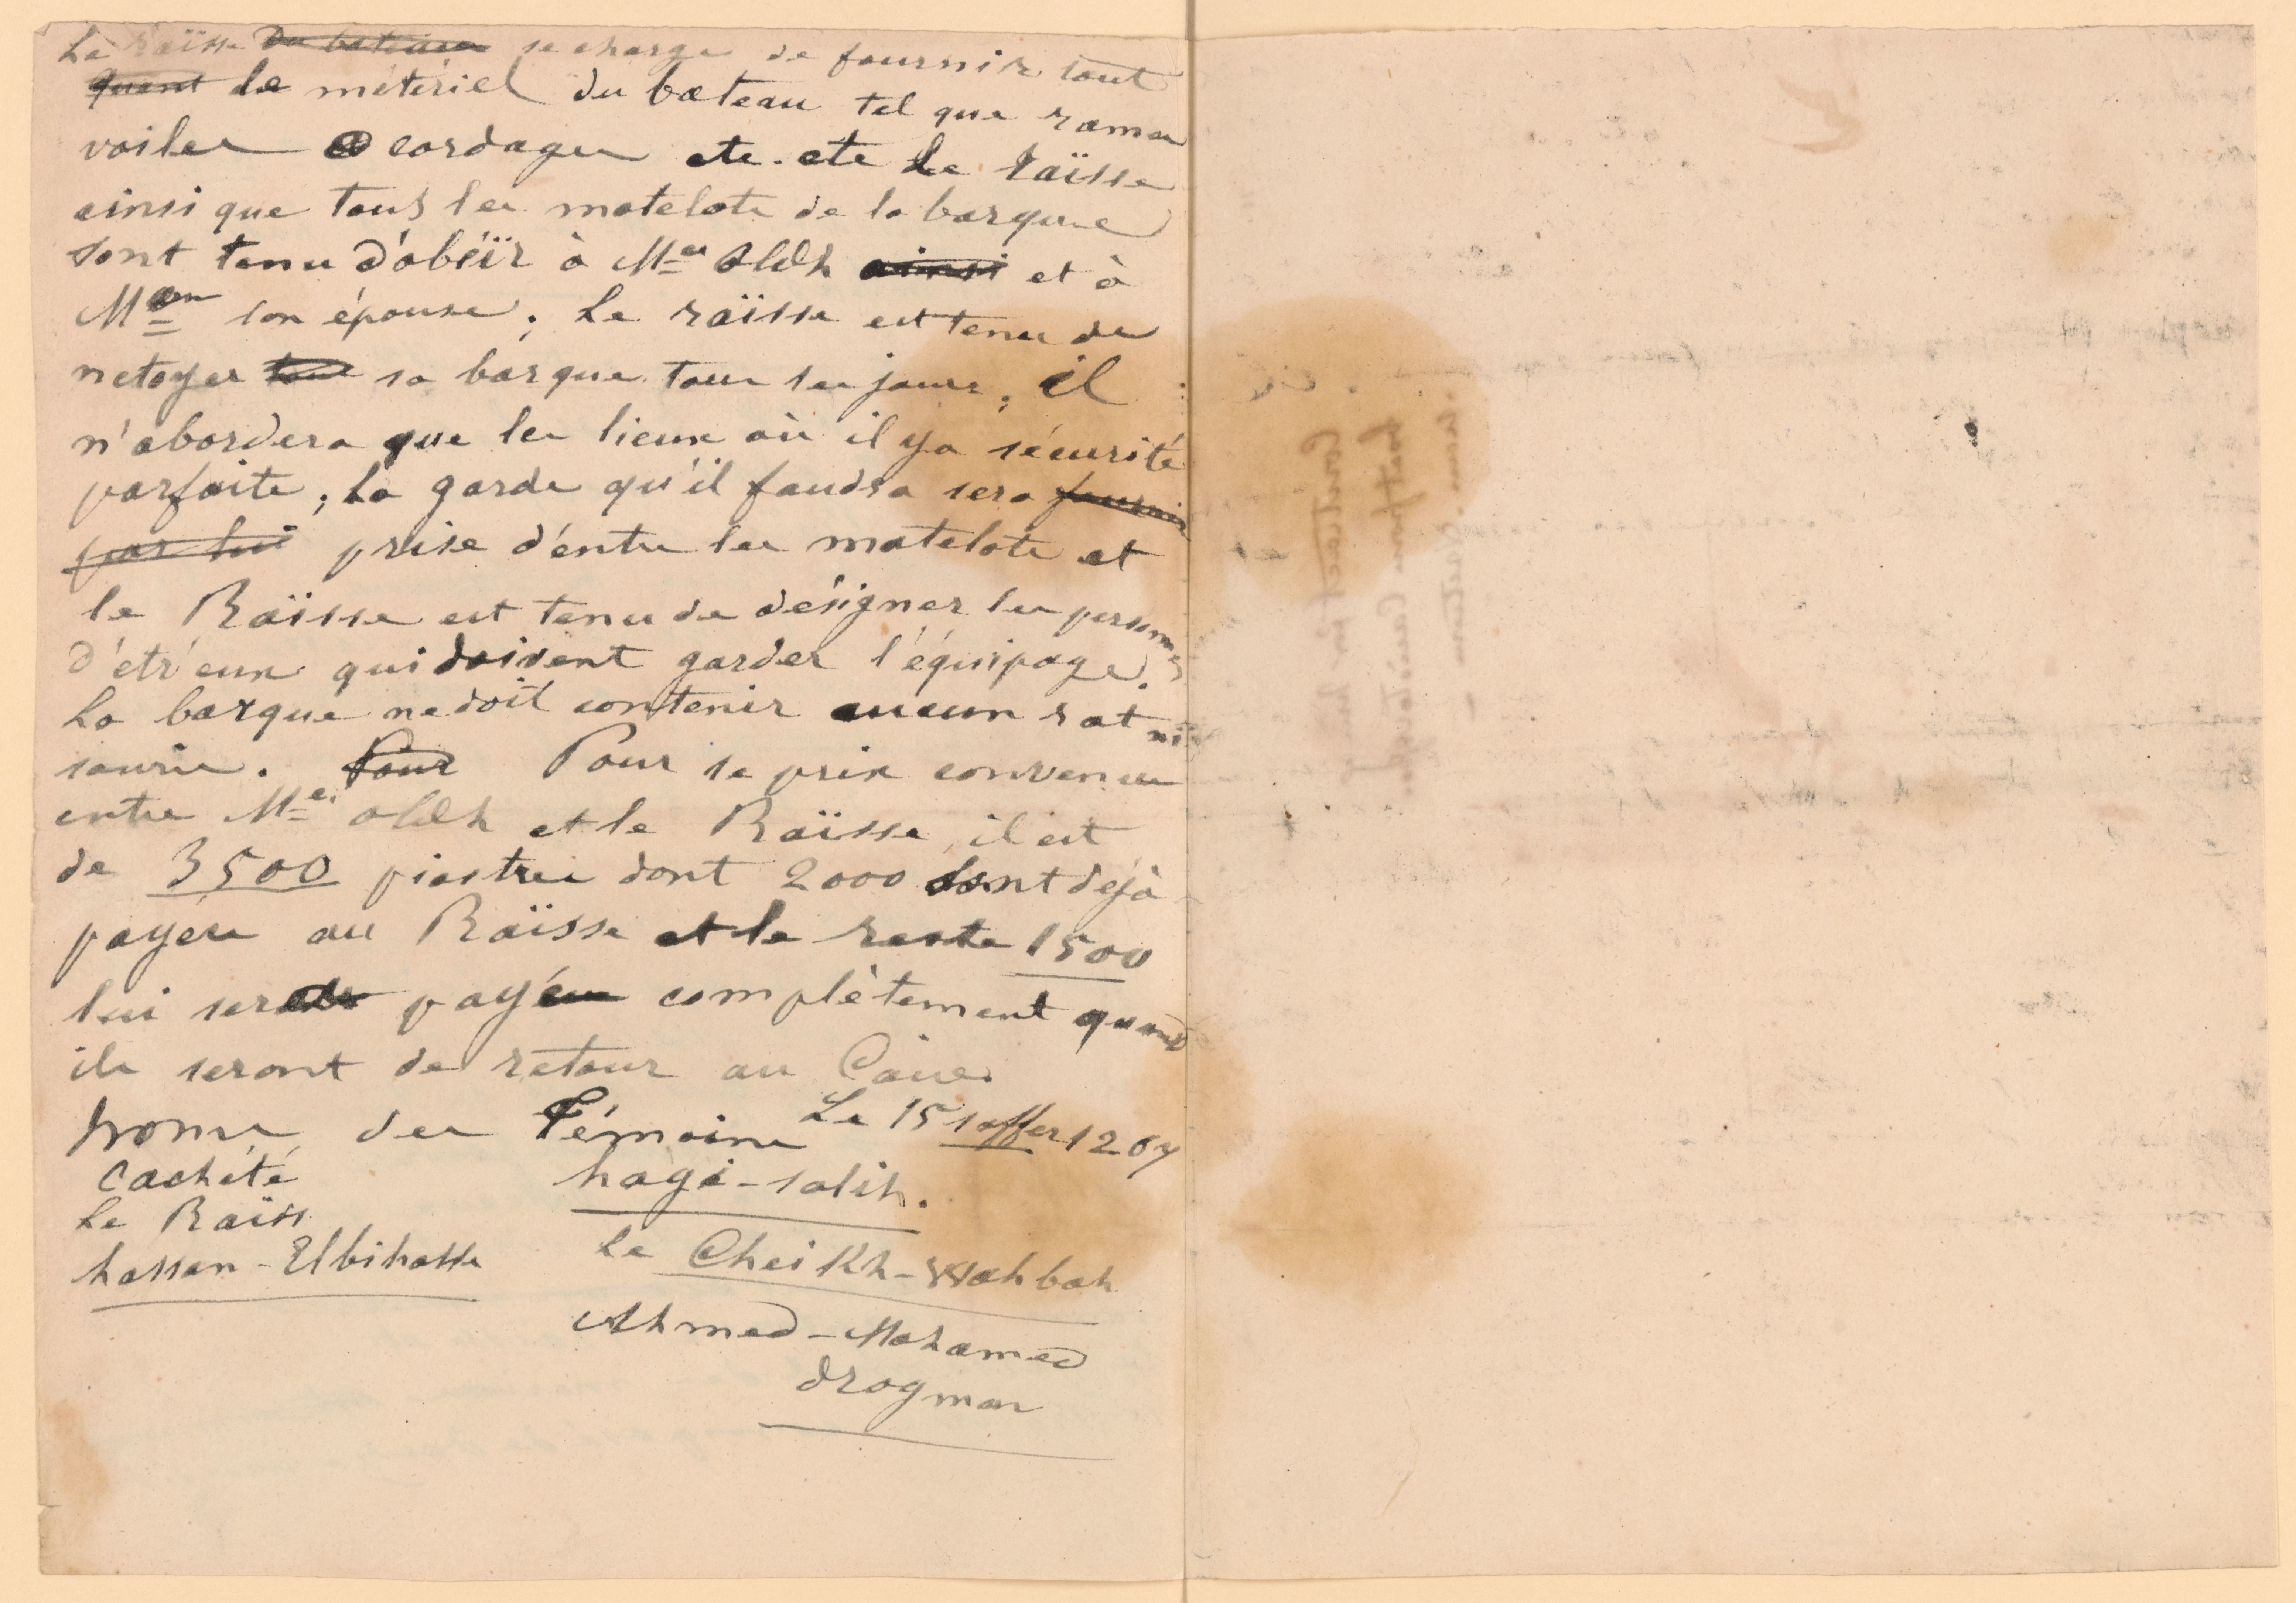 Le raïsse du bateau se charge de fournir tout
quant le métériel du bateau tel que rames
voiles cordages etc. etc Le raïsse
ainsi que tous les matelots de la barque
sont tenu d'obéïr à Mer Oldh ainsi et à
Mam son épouse; Le raïsse est tenu de
netoyer tout sa barque tous les jours; il
n'abordera que les lieux où il y a sécurité
parfaite; La garde qu'il faudra sera fournir
par lui prise d'entre les matelots et
le Raïsse est tenu de désigner les personnes
d'etr'eux qui doivent garder l'équipage.
La barque ne doit contenir aucun rat ni
souris. Pour Pour le prix convenu
entre Me. Oldh et le Raïsse, il est
de 3500 piastres dont 2000 sont déjà
payées au Raïsse et le reste 1500
lui sera payé complètement quand
ils seront de retour au Caire.
Noms des Témoins Le 15 saffer 1207
cachété hagi-salih.
Le Raïss
hassan-Elbihasse Le Cheikh-Wahbah
Ahmed-Mohamed
drogman